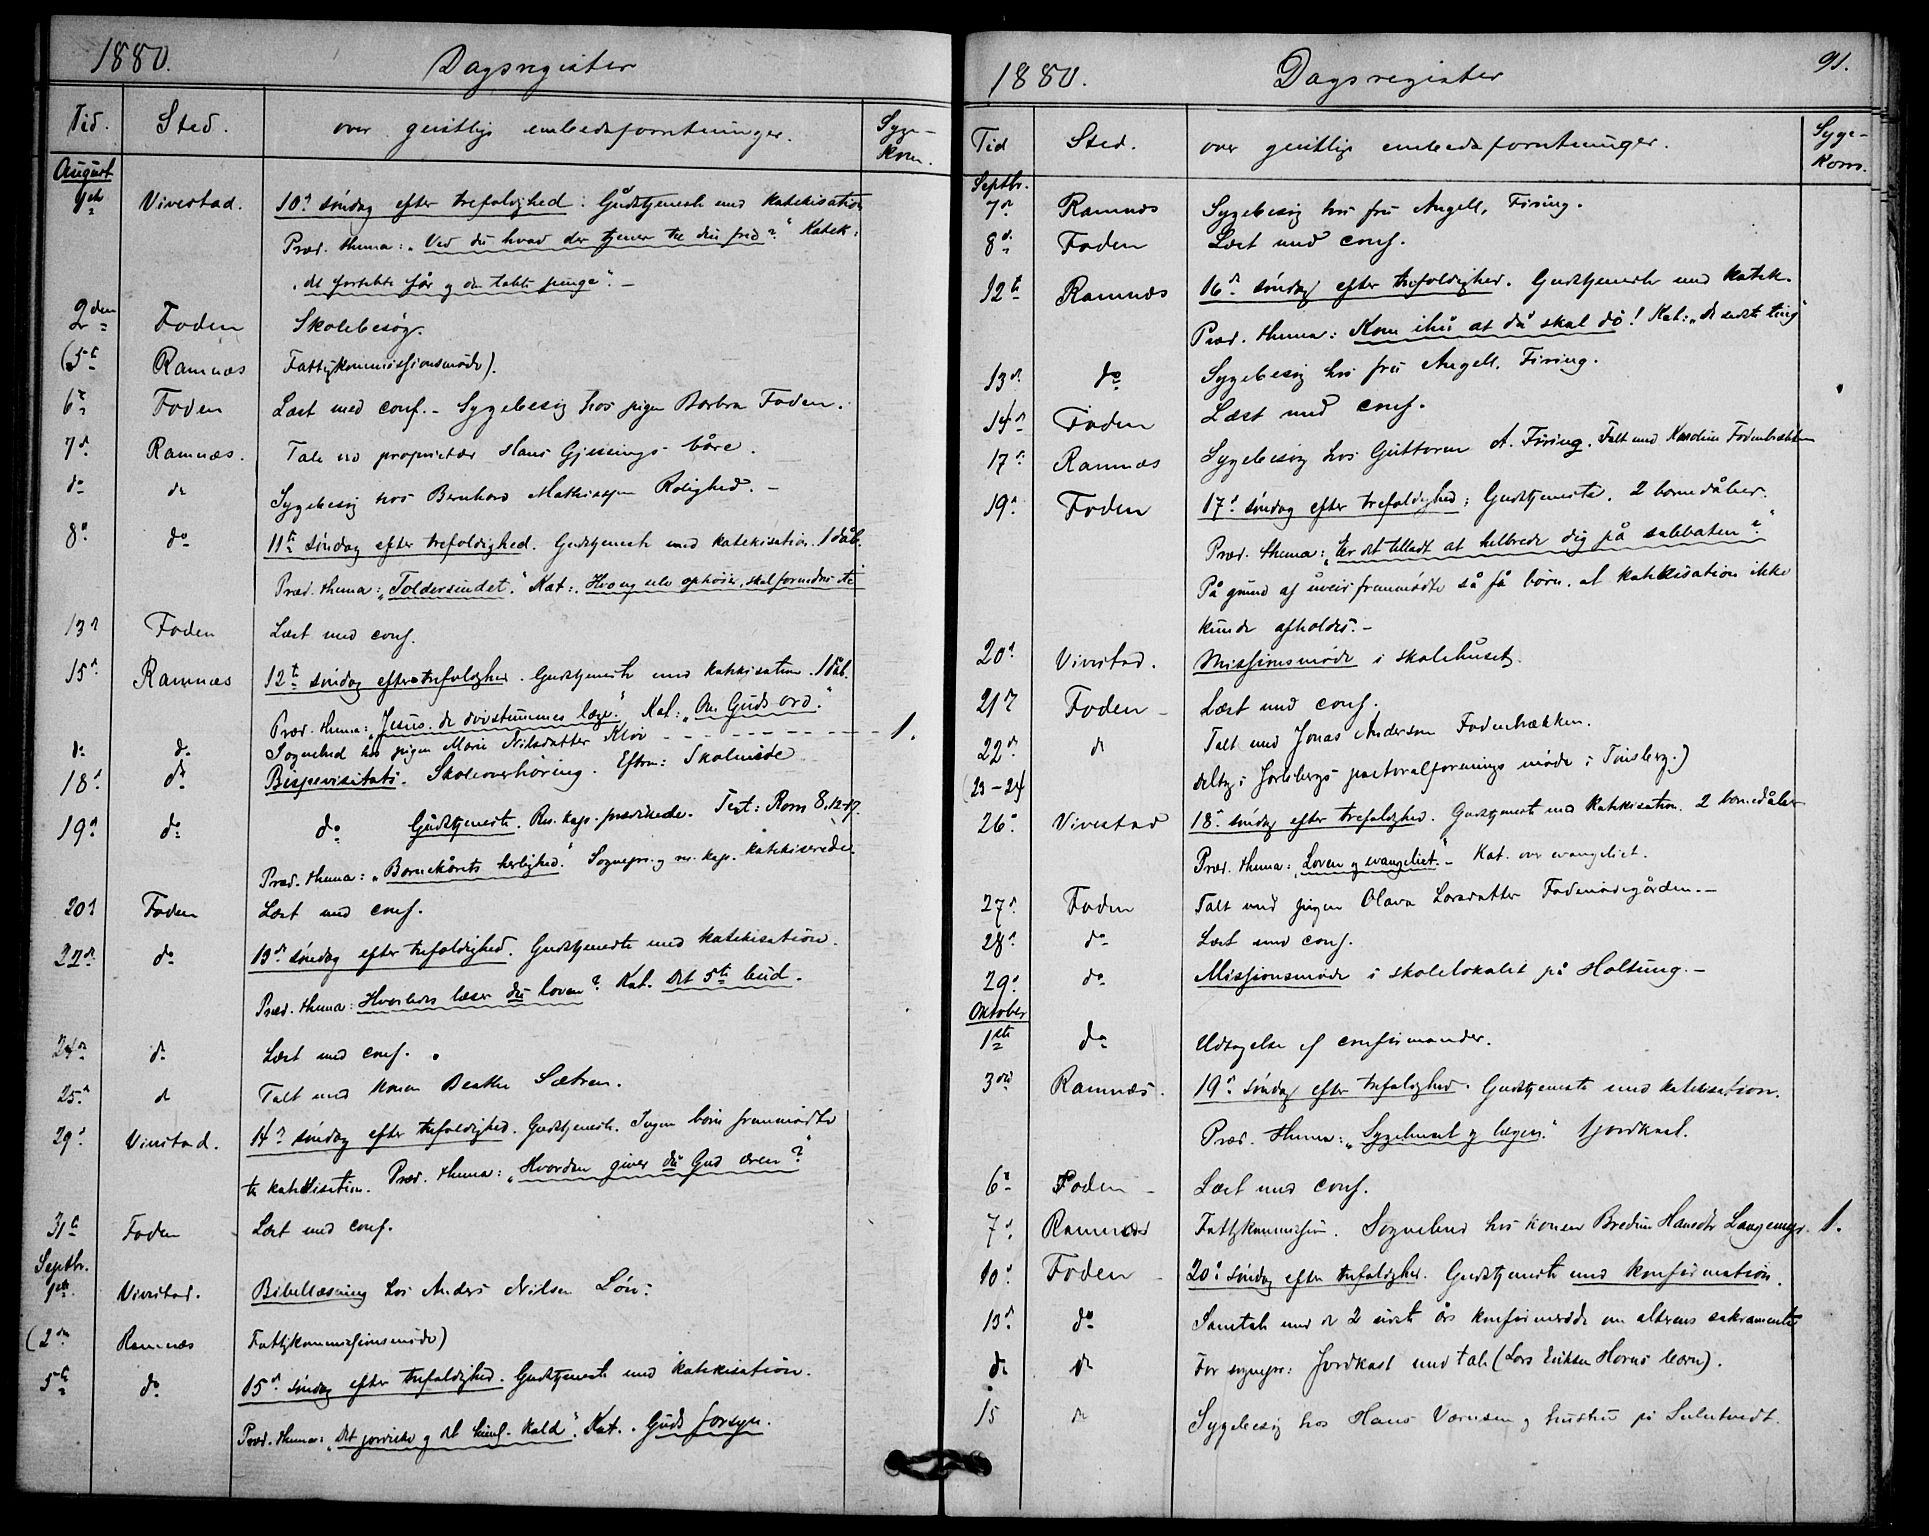 1880. Dagsregister
Tid. Sted. over geistlige embedsforretninger. Syge-
kom.
August
1ste Vivestad. 10de søndag efter trefoldighed. Gudstjeneste med katekisation
Præd. thema: "Ved du hvad der tjener til din fred?" Katek:
"det fortabte får og den tabte penge". -
2den Foden Skolebesøg.
(5te Ramnæs Fattigkommissionsmøde).
6te Foden Læst med conf. - Sygebesøg hos pigen Barbra Foden.
7de Ramnæs. Tale ved proprietær Hans Gjessings båre.
do do Sygebesøg hos Bernhard Mathiassen Rolighed. -
8de do 11te søndag efter trefoldighed. Gudstjeneste med katekisation. 1 dåb.
Præd. thema: "Toldersindet". Kat: Hver sig selv ophøier, skal fornedres
13de Foden Læst med conf.
15de Ramnæs 12te søndag efter trefoldighed. Gudstjeneste med katekisation. 1 dåb.
Præd. thema: "Jesus de døvstummes læge", Kat: "Om Guds ord."
do do Sognebud hos pigen Marie Nilsdatter Kløv - - - - - - 1.
18de do Bispevisitats. Skoleoverhøring. Efterm: Skolemøde
19de do do Gudstjeneste. Res. kap. prædikede. Text: Rom 8,12-17.
Præd. thema: "Barnekårets herlighed." Sognepr. og res. kap. katekiserede.
20de Foden Læst med conf.
22de do 13de søndag efter trefoldighed. Gudstjeneste med katekisation.
Præd. thema: Hvorledes læser du loven? Kat. Det 5te bud.
24de do Læst med conf.
25de do Talt med konen Beathe Sætren.
29de Vivestad. 14de søndag efter trefoldighed. Gudstjeneste. Ingen børn fremmødte
til katekisation. Præd. thema: "Hvordan giver du Gud æren?"
31te Foden Læst med conf.
Septbr.
1ste Vivestad. Bibellæsning hos Anders Nilsen Løv.
(2den Ramnæs Fattigkommissionsmøde)
5te do 15de søndag efter trefoldighed. Gudstjeneste med katekisation.
Præd. thema: "Det jordiske og det himl. kald". Kat. Guds forsyn.
1880. Dagsregister 91.
Tid Sted. over geistlige embedsforretninger. Syge-
kom.
Septbr.
7de Ramnæs Sygebesøg hos fru Angell, Firing.
8de Foden Læst med conf.
12te Ramnæs 16de søndag efter trefoldighed. Gudstjeneste med katek.
Præd. thema: Kom ihu at du skal dø! Kat: "De sidste ting"
13de do Sygebesøg hos fru Angell, Firing.
14de Foden Læst med conf.
17de Ramnæs Sygebesøg hos Guttorm A. Firing. Talt med Karoline Fodenbækken
19de Foden 17de søndag efter trefoldighed: Gudstjeneste. 2 barnedåber.
Præd. thema: "Er det tilladt at helbrede dig på sabbaten?"
På grund af uveir fremmødte så få børn, at katekisation ikke
kunde afholdes. -
20de Vivestad. Missionsmøde i skolehuset.
21de Foden - Læst med conf.
22de do Talt med Jonas Andersen Fodenbækken.
(23-24 deltog i Jarlsbergs pastoralforenings møde i Tønsberg.)
26de Vivestad 18de søndag efter trefoldighed. Gudstjeneste med katekisation. 2 barnedåber
Præd. thema: "Loven og evangeliet". - Kat. over evangeliet.
27de Foden Talt med pigen Olava Larsdatter Fodenødegården. -
28de do Læst med conf.
29de do Missionsmøde i skolelokalet på Holtung. -
Oktober
1ste do Udtagelse af confirmander.
3die Ramnæs. 19de søndag efter trefoldighed. Gudstjeneste med katekisation.
Præd. thema: "Sygehuset og lægen." 1 jordkast.
6te Foden - Læst med conf.
7de Ramnæs Fattigkommission. Sognebud hos konen Bredine Hansdtr Langeng. 1.
10de Foden - 20de søndag efter trefoldighed. Gudstjeneste med konfirmation.
13de do Samtale med de 2 sidste års konfirmerede om alterens sakramente
do do For sognepr: Jordkast med tale (Lars Eriksen Hornes barn).
15 do Sygebesøg hos Hans og hustru på